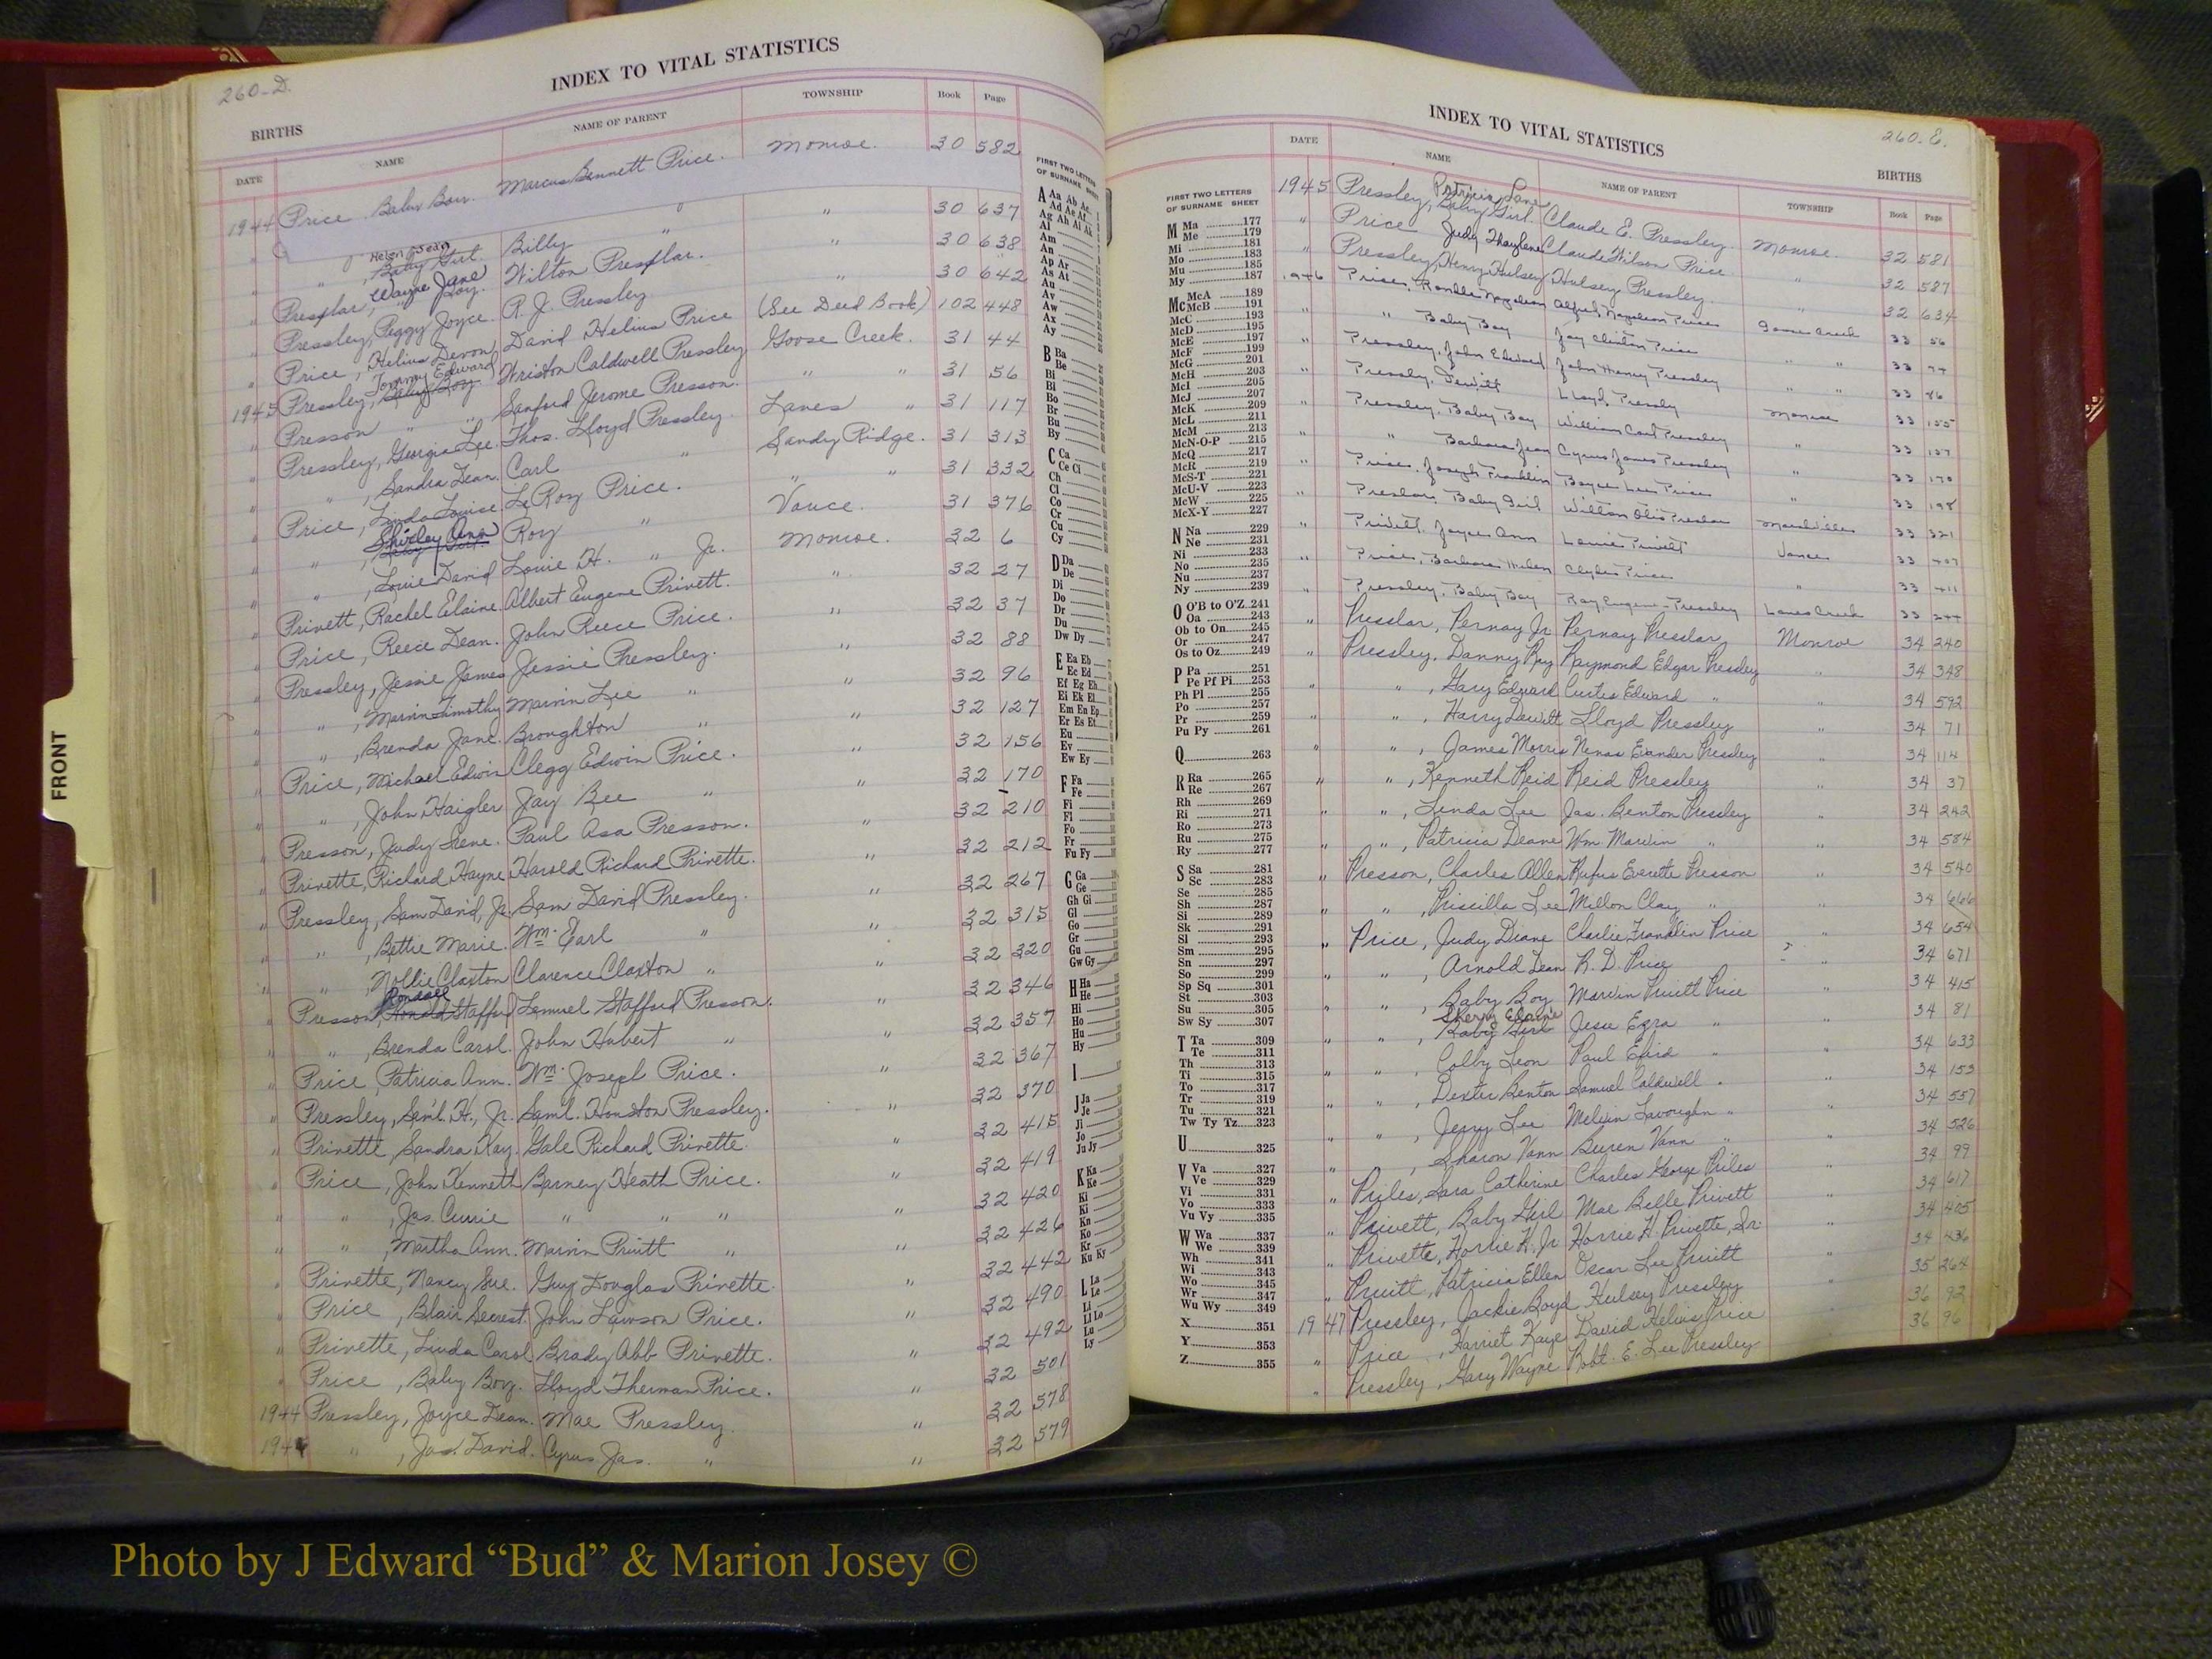 260-D.
INDEX TO VITAL STATISTICS
BIRTHS
DATE NAME NAME OF PARENT TOWNSHIP Book Page
1944 Price Baby Boy. Marcus Bennett Price. Monroe. 30 582
" " Helen Jean Baby Girt. Billy " " 30 637
" Presslar, Wayne Jane Boy. Wilton Presslar. " 30 638
" Pressley, Peggy Joyce. R. J. Pressley " 30 642
" Price, Helius Devon David Helius Price (See Deed Book) 102 448
1945 Pressley, Tommy Edward Baby Boy Wriston Caldwell Pressley Goose Creek. 31 44
" Presson " " Sanford Jerome Presson. " " 31 56
" Pressley, Georgia Lee. Thos. Lloyd Pressley. Lanes " 31 117
" " , Sandra Dean. Carl " Sandy Ridge. 31 313
" Price, Linda Louise. LeRoy Price. " " 31 332
" " , Shirley Ann Baby Girl. Roy " Vance. 31 376
" " , Louie David Louie H. " Jr. Monroe. 32 6
" Privett, Rachel Elaine. Albert Eugene Privett. " 32 27
" Price, Reece Dean. John Reece Price. " 32 37
" Pressley, Jessie James Jessie Pressley. " 32 88
" " , Marvin Timothy Marvin Lee " " 32 96
" " , Brenda Jane. Broughton " " 32 127
" Price, Michael Edwin Clegg Edwin Price. " 32 156
" " , John Haigler Jay Bee " " 32 170
" Presson, Judy Irene. Paul Asa Presson. " 32 210
" Privette, Richard Hayne Harold Richard Privette. " 32 212
" Pressley, Sam David, Jr. Sam David Pressley. " 32 267
" " , Bettie Marie. Wm. Earl " " 32 315
" " , Nollie Claxton Clarence Claxton " " 32 320
" Presson, Rondall Ronald Stafford Lemuel Stafford Presson. " 32 346
" " , Brenda Carol. John Hubert " " 32 357
" Price, Patricia Ann. Wm. Joseph Price. " 32 367
" Pressley, Saml. H., Jr. Saml. Houston Pressley. " 32 370
" Privette, Sandra Kay. Gale Richard Privette. " 32 415
" Price, John Kenneth Barney Heath Price. " 32 419
" " , Jas. Currie " " " " 32 420
" " , Martha Ann. Marvin Pruitt " " 32 426
" Privette, Nancy Sue. Guy Douglas Privette. " 32 442
" Price, Blair Secrest. John Lawson Price. " 32 490
" Privette, Linda Carol Brady Abb Privette. " 32 492
" Price, Baby Boy. Lloyd Therman Price. " 32 501
1944 Pressley, Joyce Dean. Mae Pressley. " 32 578
194 " , Jas. David. Cyrus Jas. " " 32 579
FIRST TWO LETTERS
OF SURNAME SHEET
A Aa Ab Ac
Ad Ae Af
Ag Ah Ai Ak
Al
Am
An
Ap Ar
As At
Au
Av
Aw
Ax
Ay
B Ba
Be
Bi
Bl
Bo
Br
Bu
By
C Ca
Ce Ci
Ch
Cl
Co
Cr
Cu
Cy
D Da
De
Di
Do
Dr
Du
Dw Dy
E Ea Eb
Ec Ed
Ef Eg Eh
Ei Ek El
Em En Ep
Er Es Et
Eu
Ev
Ew Ey
F Fa
Fe
Fi
Fl
Fo
Fr
Fu Fy
G Ga
Ge
Gh Gi
Gl
Go
Gr
Gu
Gw Gy
H Ha
He
Hi
Ho
Hu
Hy
I
J Ja
Je
Ji
Jo
Ju Jy
K Ka
Ke
Ki
Kl
Kn
Ko
Kr
Ku Ky
L La
Le
Li
Ll Lo
Lu
Ly
FRONT
INDEX TO VITAL STATISTICS
260-E.
BIRTHS
DATE NAME NAME OF PARENT TOWNSHIP Book Page
FIRST TWO LETTERS
OF SURNAME SHEET
M Ma 177
Me 179
Mi 181
Mo 183
Mu 185
My 187
Mc McA 189
McB 191
McC 193
McD 195
McE 197
McF 199
McG 201
McH 203
McI 205
McJ 207
McK 209
McL 211
McM 213
McN-O-P 215
McQ 217
McR 219
McS-T 221
McU-V 223
McW 225
McX-Y 227
N Na 229
Ne 231
Ni 233
No 235
Nu 237
Ny 239
O O'B to O'Z 241
Oa 243
Ob to On 245
Or 247
Os to Oz 249
P Pa 251
Pe Pf Pi 253
Ph Pl 255
Po 257
Pr 259
Pu Py 261
Q 263
R Ra 265
Re 267
Rh 269
Ri 271
Ro 273
Ru 275
Ry 277
S Sa 281
Sc 283
Se 285
Sh 287
Si 289
Sk 291
Sl 293
Sm 295
Sn 297
So 299
Sp Sq 301
St 303
Su 305
Sw Sy 307
T Ta 309
Te 311
Th 313
Ti 315
To 317
Tr 319
Tu 321
Tw Ty Tz 323
U 325
V Va 327
Ve 329
Vi 331
Vo 333
Vu Vy 335
W Wa 337
We 339
Wh 341
Wi 343
Wo 345
Wr 347
Wu Wy 349
X 351
Y 353
Z 355
1945 Pressley, Patricia Jane Baby Girl Claude E. Pressley. Monroe. 32 581
" Price Judy Thaylene Claude Wilson Price " 32 587
" Pressley, Henry Hulsey Hulsey Pressley. " 32 634
1946 Price, Rondle Napoleon Alfred Napoleon Price Goose Creek 33 56
" " Baby Boy Jay Clinton Price " " 33 77
" Pressley, John Edward John Henry Pressley " " 33 86
" Pressly, Dewitt Lloyd Pressly Monroe 33 155
" Pressley, Baby Boy William Carl Pressley " 33
" " Barbara Jean Cyrus James Pressley " 33 170
" Price, Joseph Franklin Boyce Lee Price " 33 198
" Preslar, Baby Girl William Olis Preslar Marshville 33 321
" Privett, Joyce Ann Louie Privett Vance 33 407
" Price, Barbara Helen Clyde Price " 33 411
" Pressley, Baby Boy Ray Eugene Pressley Lanes Creek 33
" Presslar, Pernay Jr Pernay Presslar Monroe 34 240
" Pressley, Danny Ray Raymond Edgar Pressley " 34 348
" " , Gary Edward Curtis Edward " " 34 592
" " , Harry Dewitt Lloyd Pressley " 34 71
" " , James Morris Nenas Evander Pressley " 34 114
" " , Kenneth Reid Reid Pressley " 34 37
" " , Linda Lee Jas. Benton Pressley " 34 242
" " , Patricia Deane Wm Marvin " " 34 584
" Presson, Charles Allen Rufus Everette Presson " 34 540
" " , Priscilla Lee Millon Clay " " 34 666
" Price, Judy Diane Charlie Franklin Price " 34 654
" " , Arnold Dean R. D. Price " 34 671
" " , Baby Boy Marvin Pruitt Price " 34 415
" " , Sherry Elaine Baby Girl Jesse Ezra " " 34 81
" " , Colby Leon Paul " " 34 633
" " , Dexter Benton Samuel Caldwell " " 34 153
" " , Jerry Lee Melvin Lavoughn " " 34 557
" " , Sharon Vann Buren Vann " " 34 526
" Priles, Sara Catherine Charles George Priles " 34 99
" Privett, Baby Girl Mae Belle Privett " 34 617
" Privette, Horrie H. Jr Horrie H. Privette, Sr. " 34 405
" Pruitt, Patricia Ellen Oscar Lee Pruitt " 34 436
1947 Pressley, Jackie Boyd Hulsey Pressley 35 264
" Price, Harriet Kaye David Helius Price 36 92
" Pressley, Gary Wayne Robt. E. Lee Pressley 36 96
Photo by J Edward “Bud” & Marion Josey ©